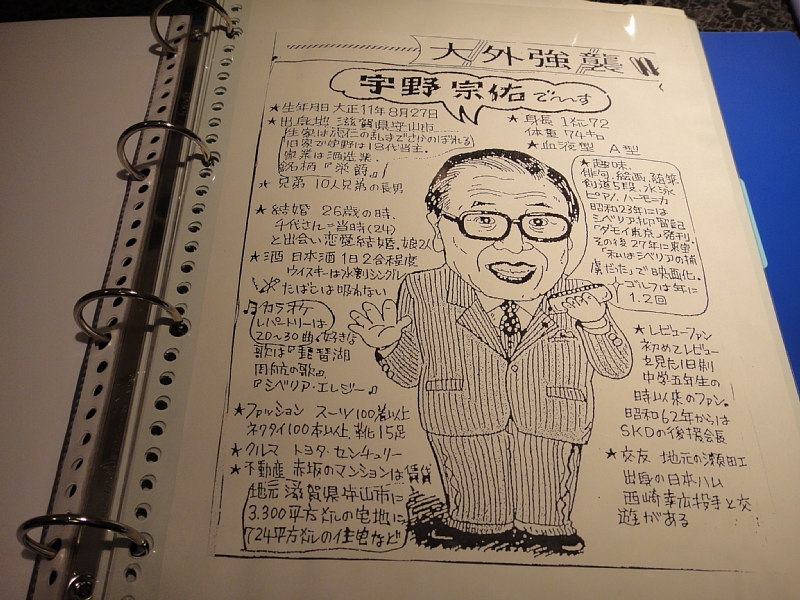 大外強襲
宇野宗佑で〜す
★生年月日 大正11年8月27日
★出身地 滋賀県守山市
生家は応仁の乱までさかのぼれる
旧家で宇野は18代当主。
家業は酒造業。
銘柄『栄爵』
★兄弟 10人兄弟の長男
★結婚 26歳の時、
千代さん=当時(24)
と出会い恋愛結婚。娘2人
★酒 日本酒1日2合程度
ウイスキーは水割りシングル
たばこは吸わない
カラオケ
レパートリーは
20〜30曲。好きな
歌は『琵琶湖
周航の歌』
『シベリア・エレジー』
★ファッション スーツ100着以上
ネクタイ100本以上、靴15足
★クルマ トヨタ・センチュリー
★不動産 赤坂のマンションは賃貸
地元 滋賀県守山市に
3,300平方メートルの宅地に
724平方メートルの住宅など
★身長 1メートル72
体重 74キロ
★血液型 A型
★趣味
俳句、絵画、随筆
剣道5段、水泳
ピアノ、ハーモニカ
昭和23年には
シベリア抑留記
「ダモイ東京」発刊。
その後27年に東宝
「私はシベリアの捕
虜だった」で映画化。
ゴルフは年に
1、2回
★レビューファン
初めてレビュー
を見た旧制
中学五年生の
時以来のファン。
昭和62年からは
SKDの後援会長
★交友 地元の瀬田工
出身の日本ハム
西崎幸広投手と交
遊がある